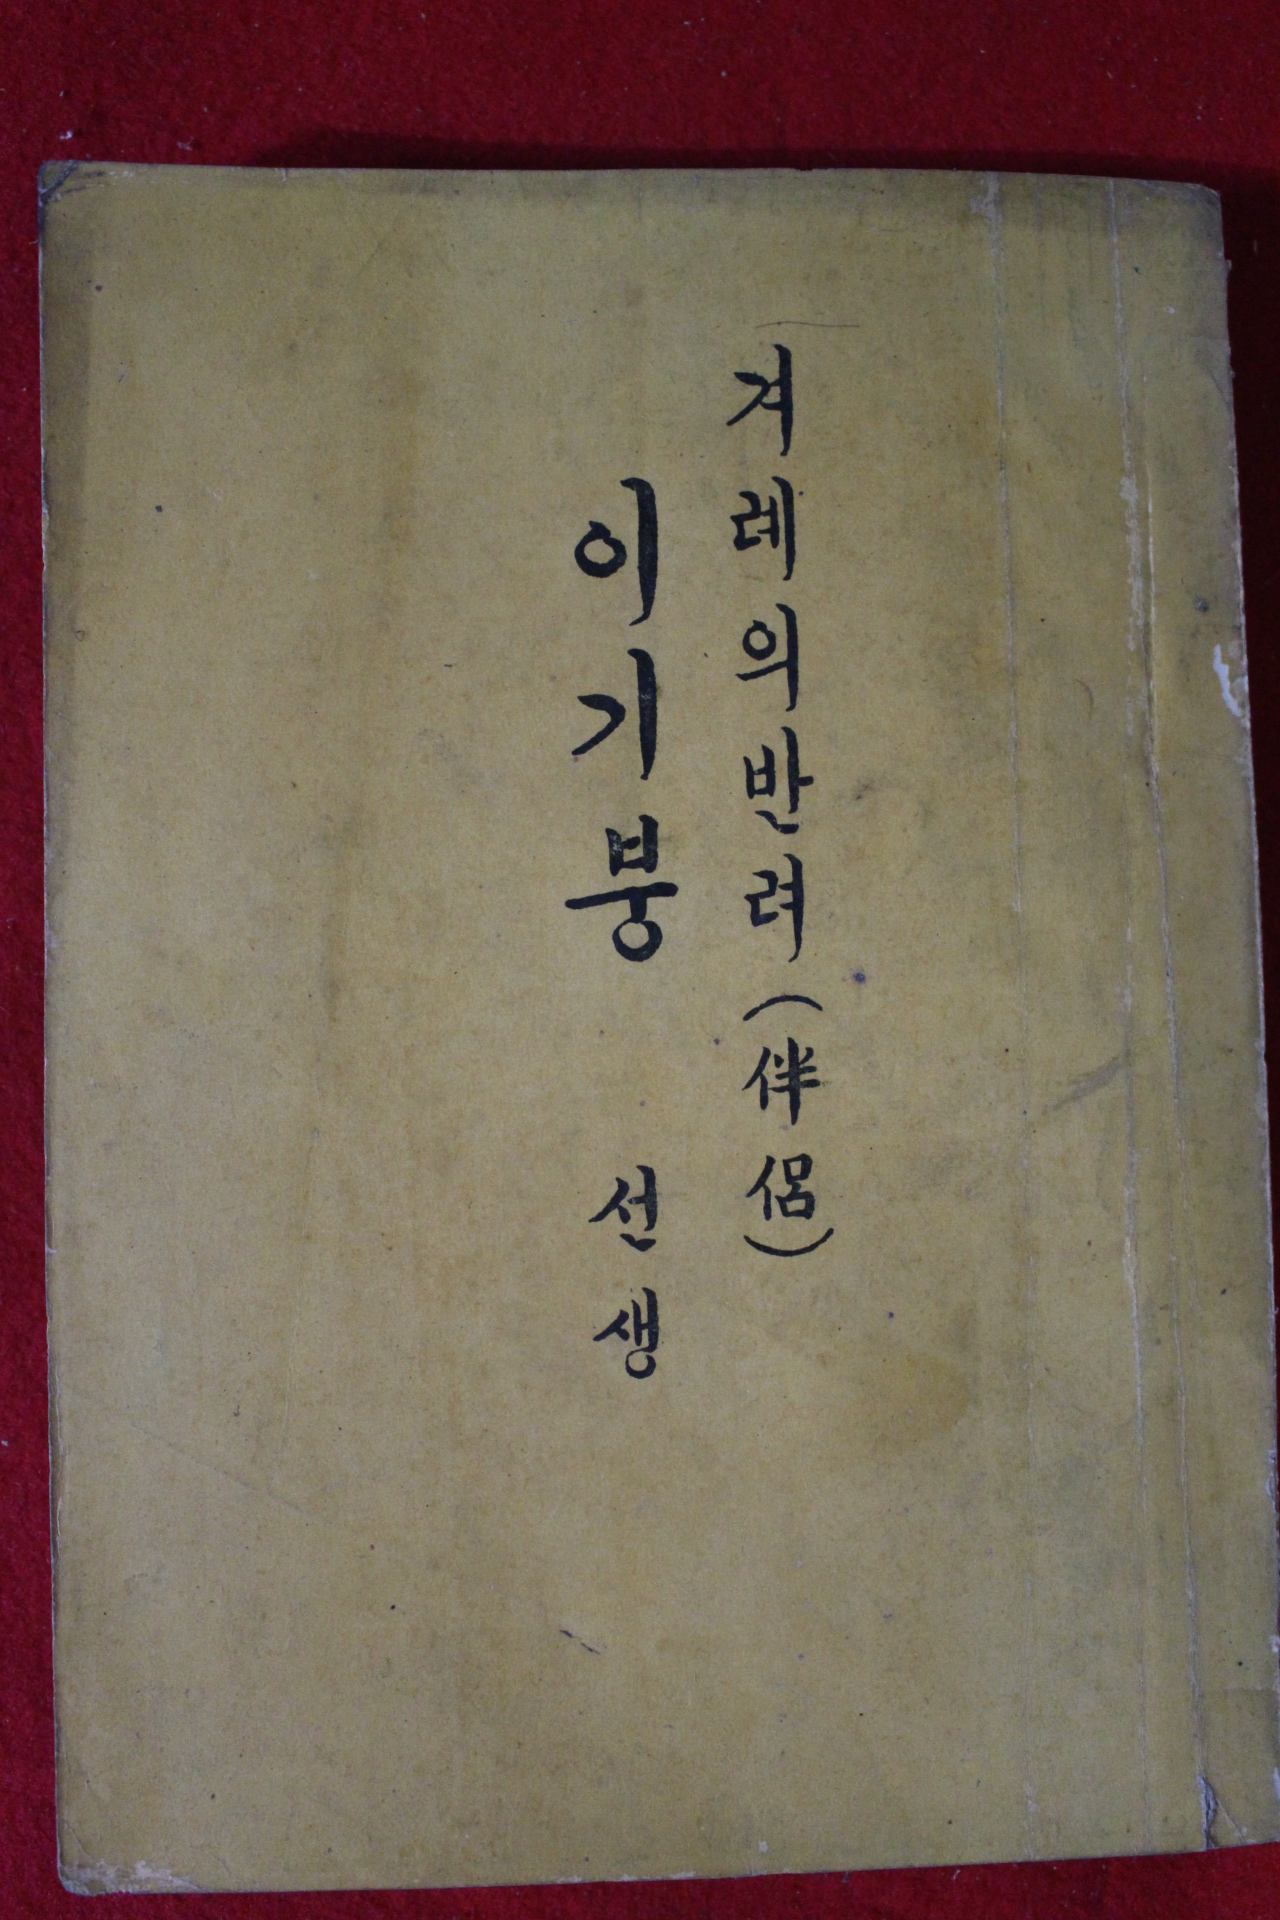 겨레의반려(伴侶)
이기붕 선생